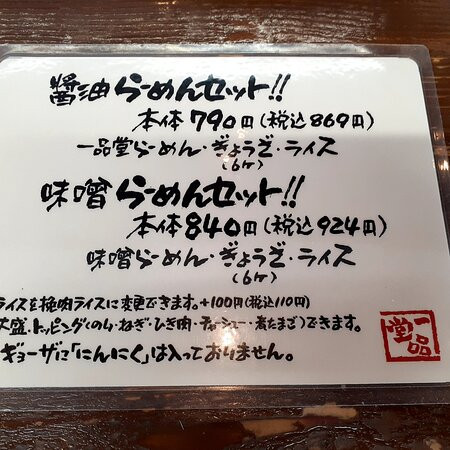 醤油らーめんセット!!
本体790円(税込869円)
一品堂らーめん・ぎょうざ・ライス
(6ケ)
味噌らーめんセット!!
本体840円(税込924円)
味噌らーめん・ぎょうざ・ライス
(6ケ)
ライスを挽肉ライスに変更できます。+100円(税込110円)
大盛、トッピング(のり・ねぎ・ひき肉・チャーシュー・煮たまご)できます。
ギョーザに「にんにく」は入っておりません。
一品堂